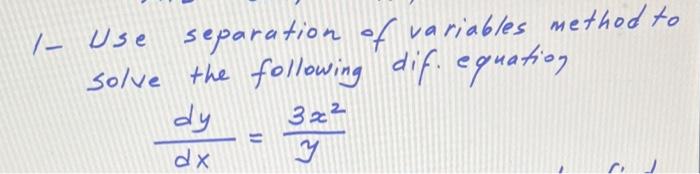 1- Use separation of variables method to
solve the following dif. equation
dy/dx = 3x²/y